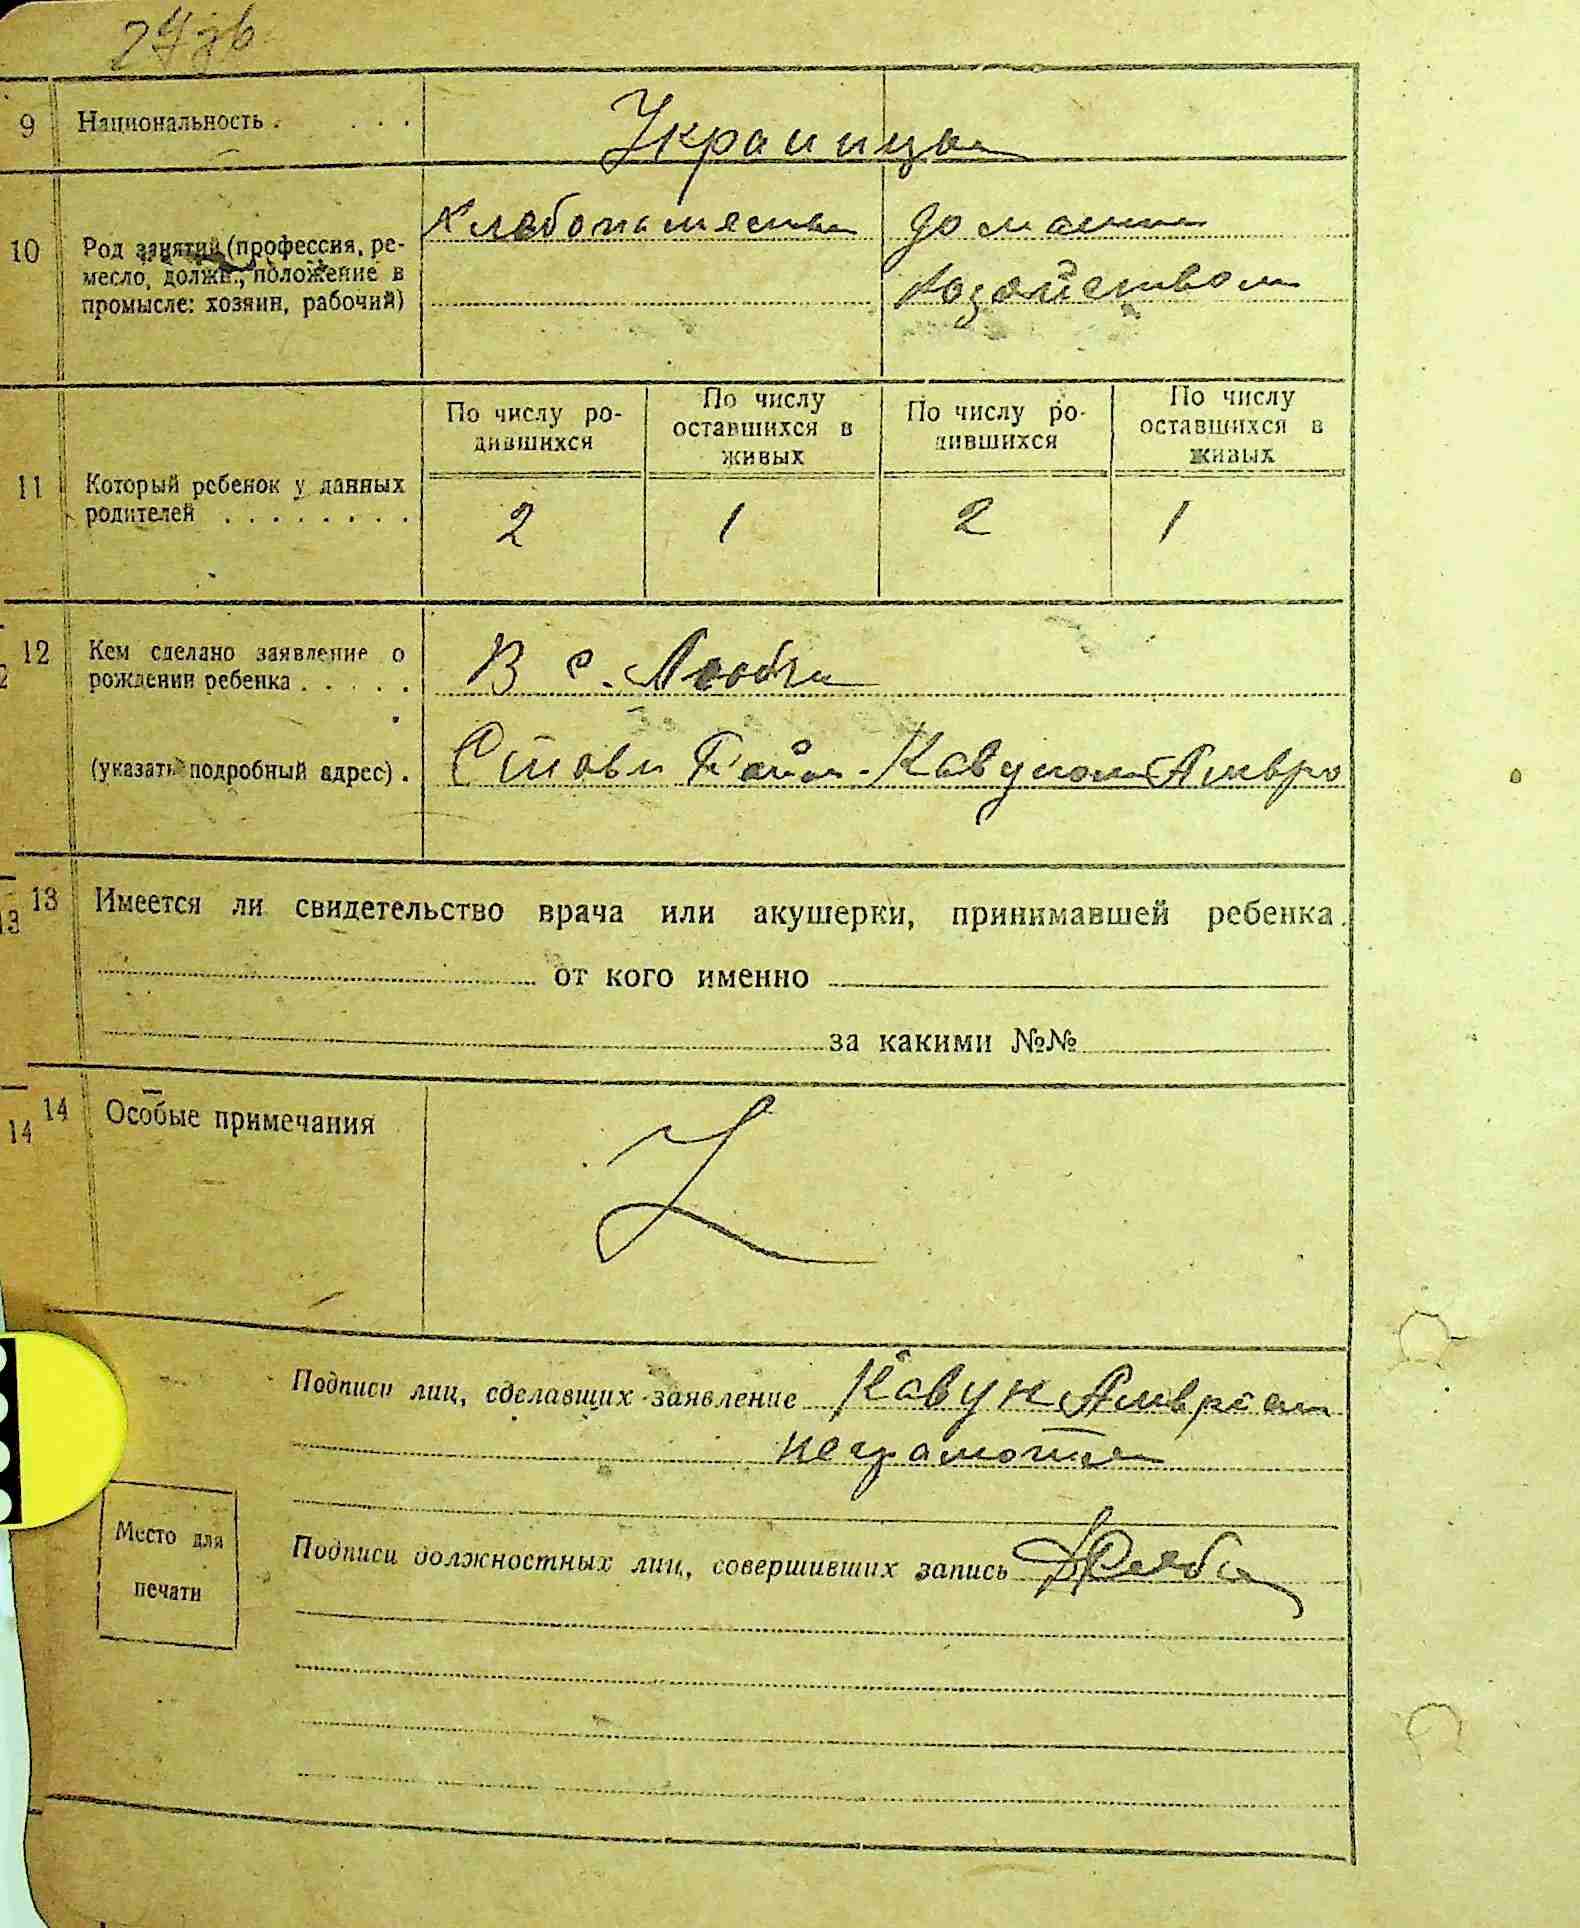 27
9 Национальность . . . . Украинцы
10 Род занятий (профессия, ре-
месло, должн., положение в
промысле: хозяин, рабочий)
Хлебопашество домашним
хозяйством
11 Который ребенок у данных
родителей . . . . . . . .
По числу ро-
дившихся
По числу
оставшихся в
живых
По числу ро-
дившихся
По числу
оставшихся в
живых
2 1 2 1
12 Кем сделано заявление о
рождении ребенка . . . . .
В с.
(указать подробный адрес) .
Кавуном Амвро
13 Имеется ли свидетельство врача или акушерки, принимавшей ребенка
13
от кого именно
за какими №№
14 Особые примечания
14
Z
Подписи лиц, сделавших заявление Кавун
неграмотен
Место для
печати
Подписи должностных лиц, совершивших запись